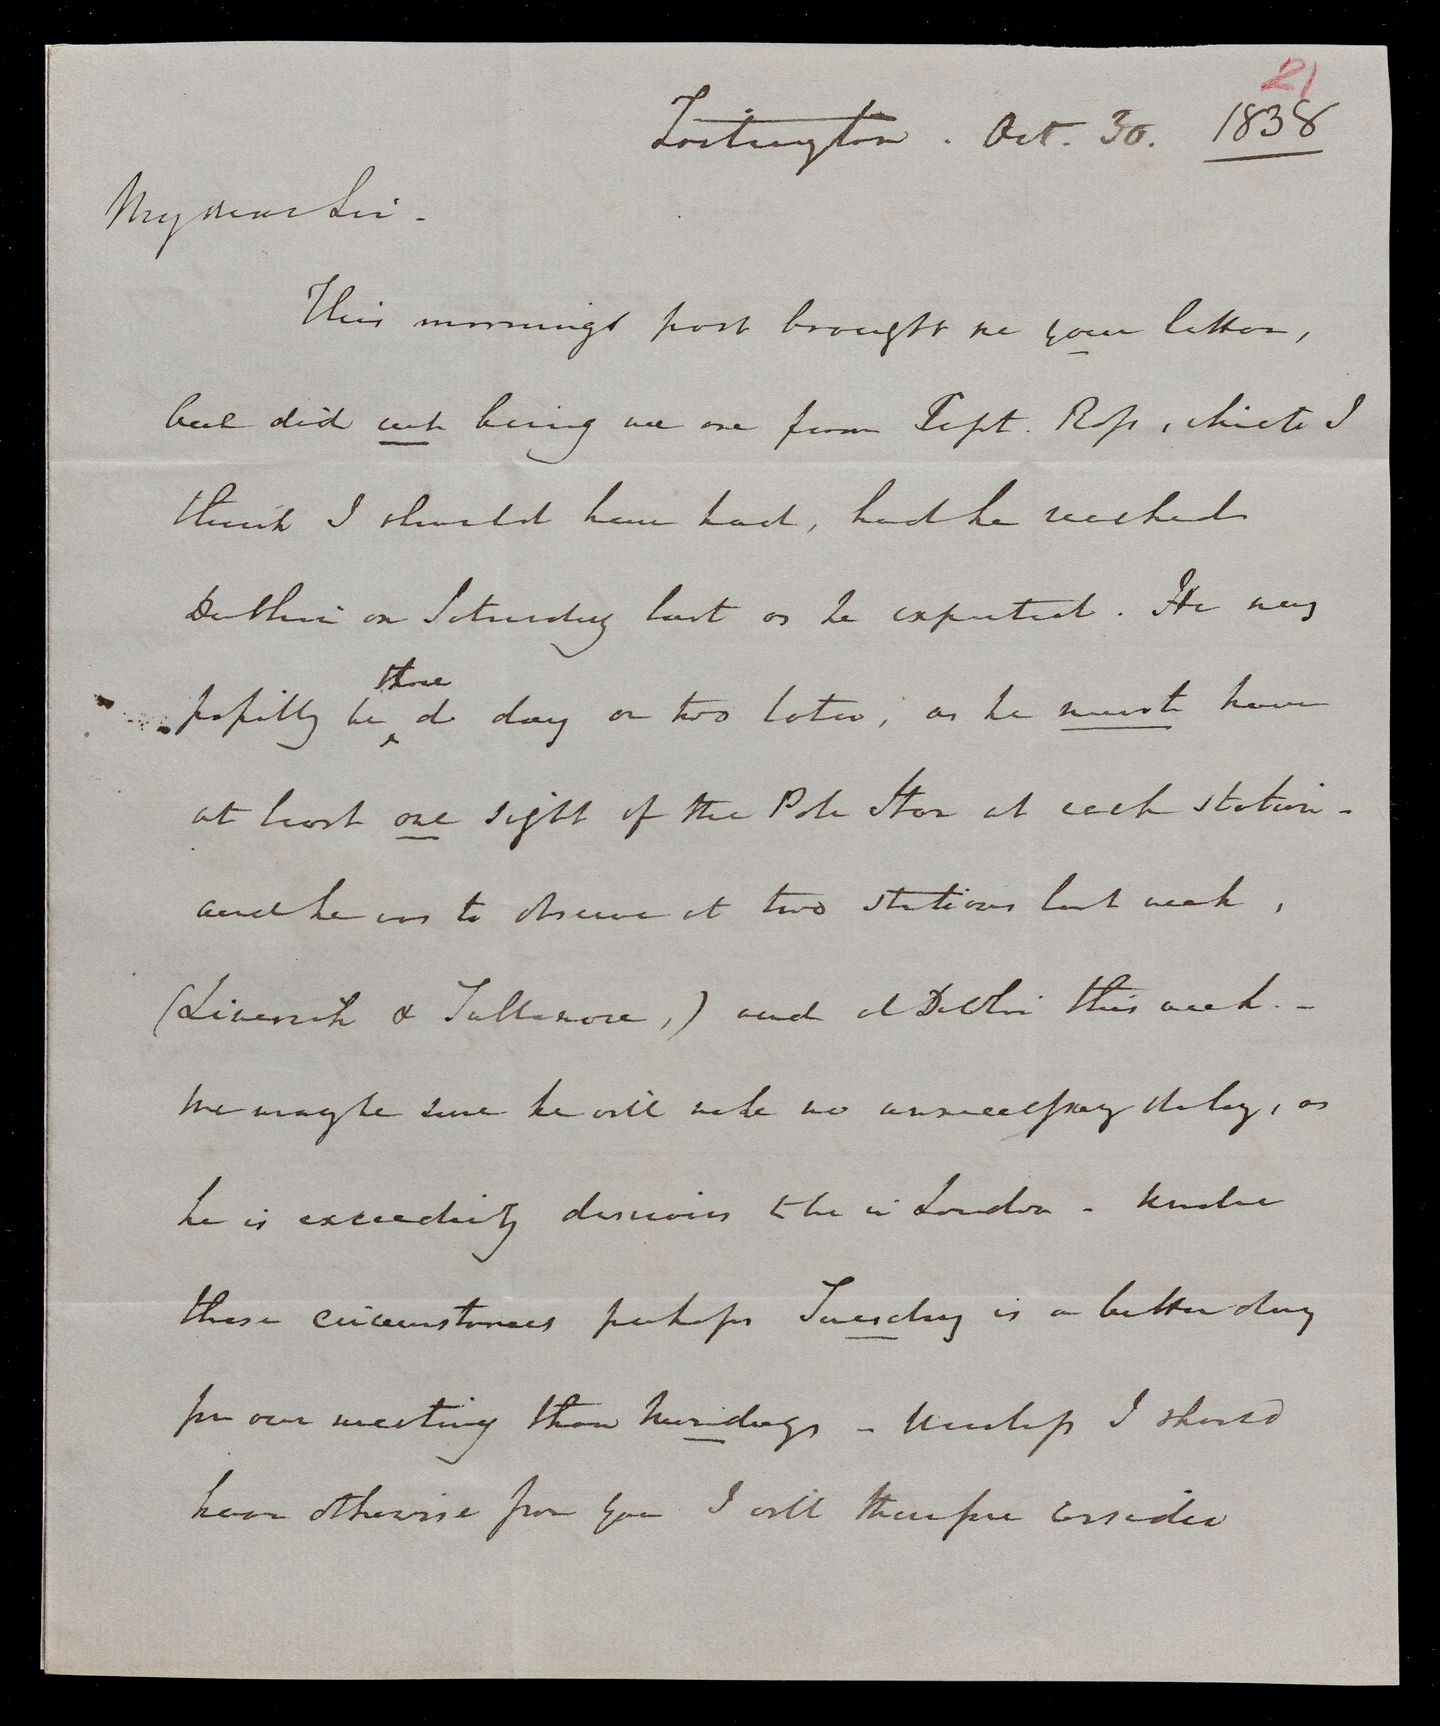 21
Tortington. Oct. 30. 1838
My dear Sir -
This mornings post brought me your letter,
but did not bring me one from Capt. Ross, which I
think I should have had, had he reached
Dublin on Saturday last as he expected. He may
possibly be three a day or two later, as he must have
at least one sight of the Pole Star at each station -
and he was to observe at two stations last week,
(Limerick & Tullamore,) and at Dublin this week. -
We may be sure he will make no unnecessary delay, as
he is exceedingly desirous to be in London - Under
these circumstances perhaps Tuesday is a better day
for our meeting than Mondays - Unless I should
hear otherwise from you I will therefore consider